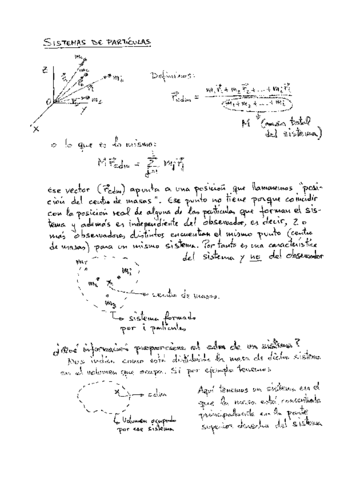 SISTEMAS DE PARTÍCULAS
Definimos:
r⃗cdm = m₁r⃗₁ + m₂r⃗₂ + ... + mᵢr⃗ᵢ / m₁ + m₂ + ... + mᵢ
M (masa total
del sistema)
o lo que es lo mismo:
M r⃗cdm = Σ mⱼ r⃗ⱼ
ese vector (r⃗cdm) apunta a una posición que llamaremos "posi-
ción del centro de masas". Ese punto no tiene porque coincidir
con la posición real de alguna de las partículas que forman el sis-
tema y además es independiente del observador, es decir, 2 o
más observadores distintos encuentran el mismo punto (centro
de masas) para un mismo sistema. Por tanto es una característica
del sistema y no del observador
centro de masas.
sistema formado
por i partículas
¿Qué información proporciona el cdm de un sistema?
Nos indica como está distribuida la masa de dicho sistema
en el volumen que ocupa. Si por ejemplo tenemos
cdm
Volumen ocupado
por ese sistema
Aquí tenemos un sistema en el
que la masa está concentrada
principalmente en la parte
superior derecha del sistema